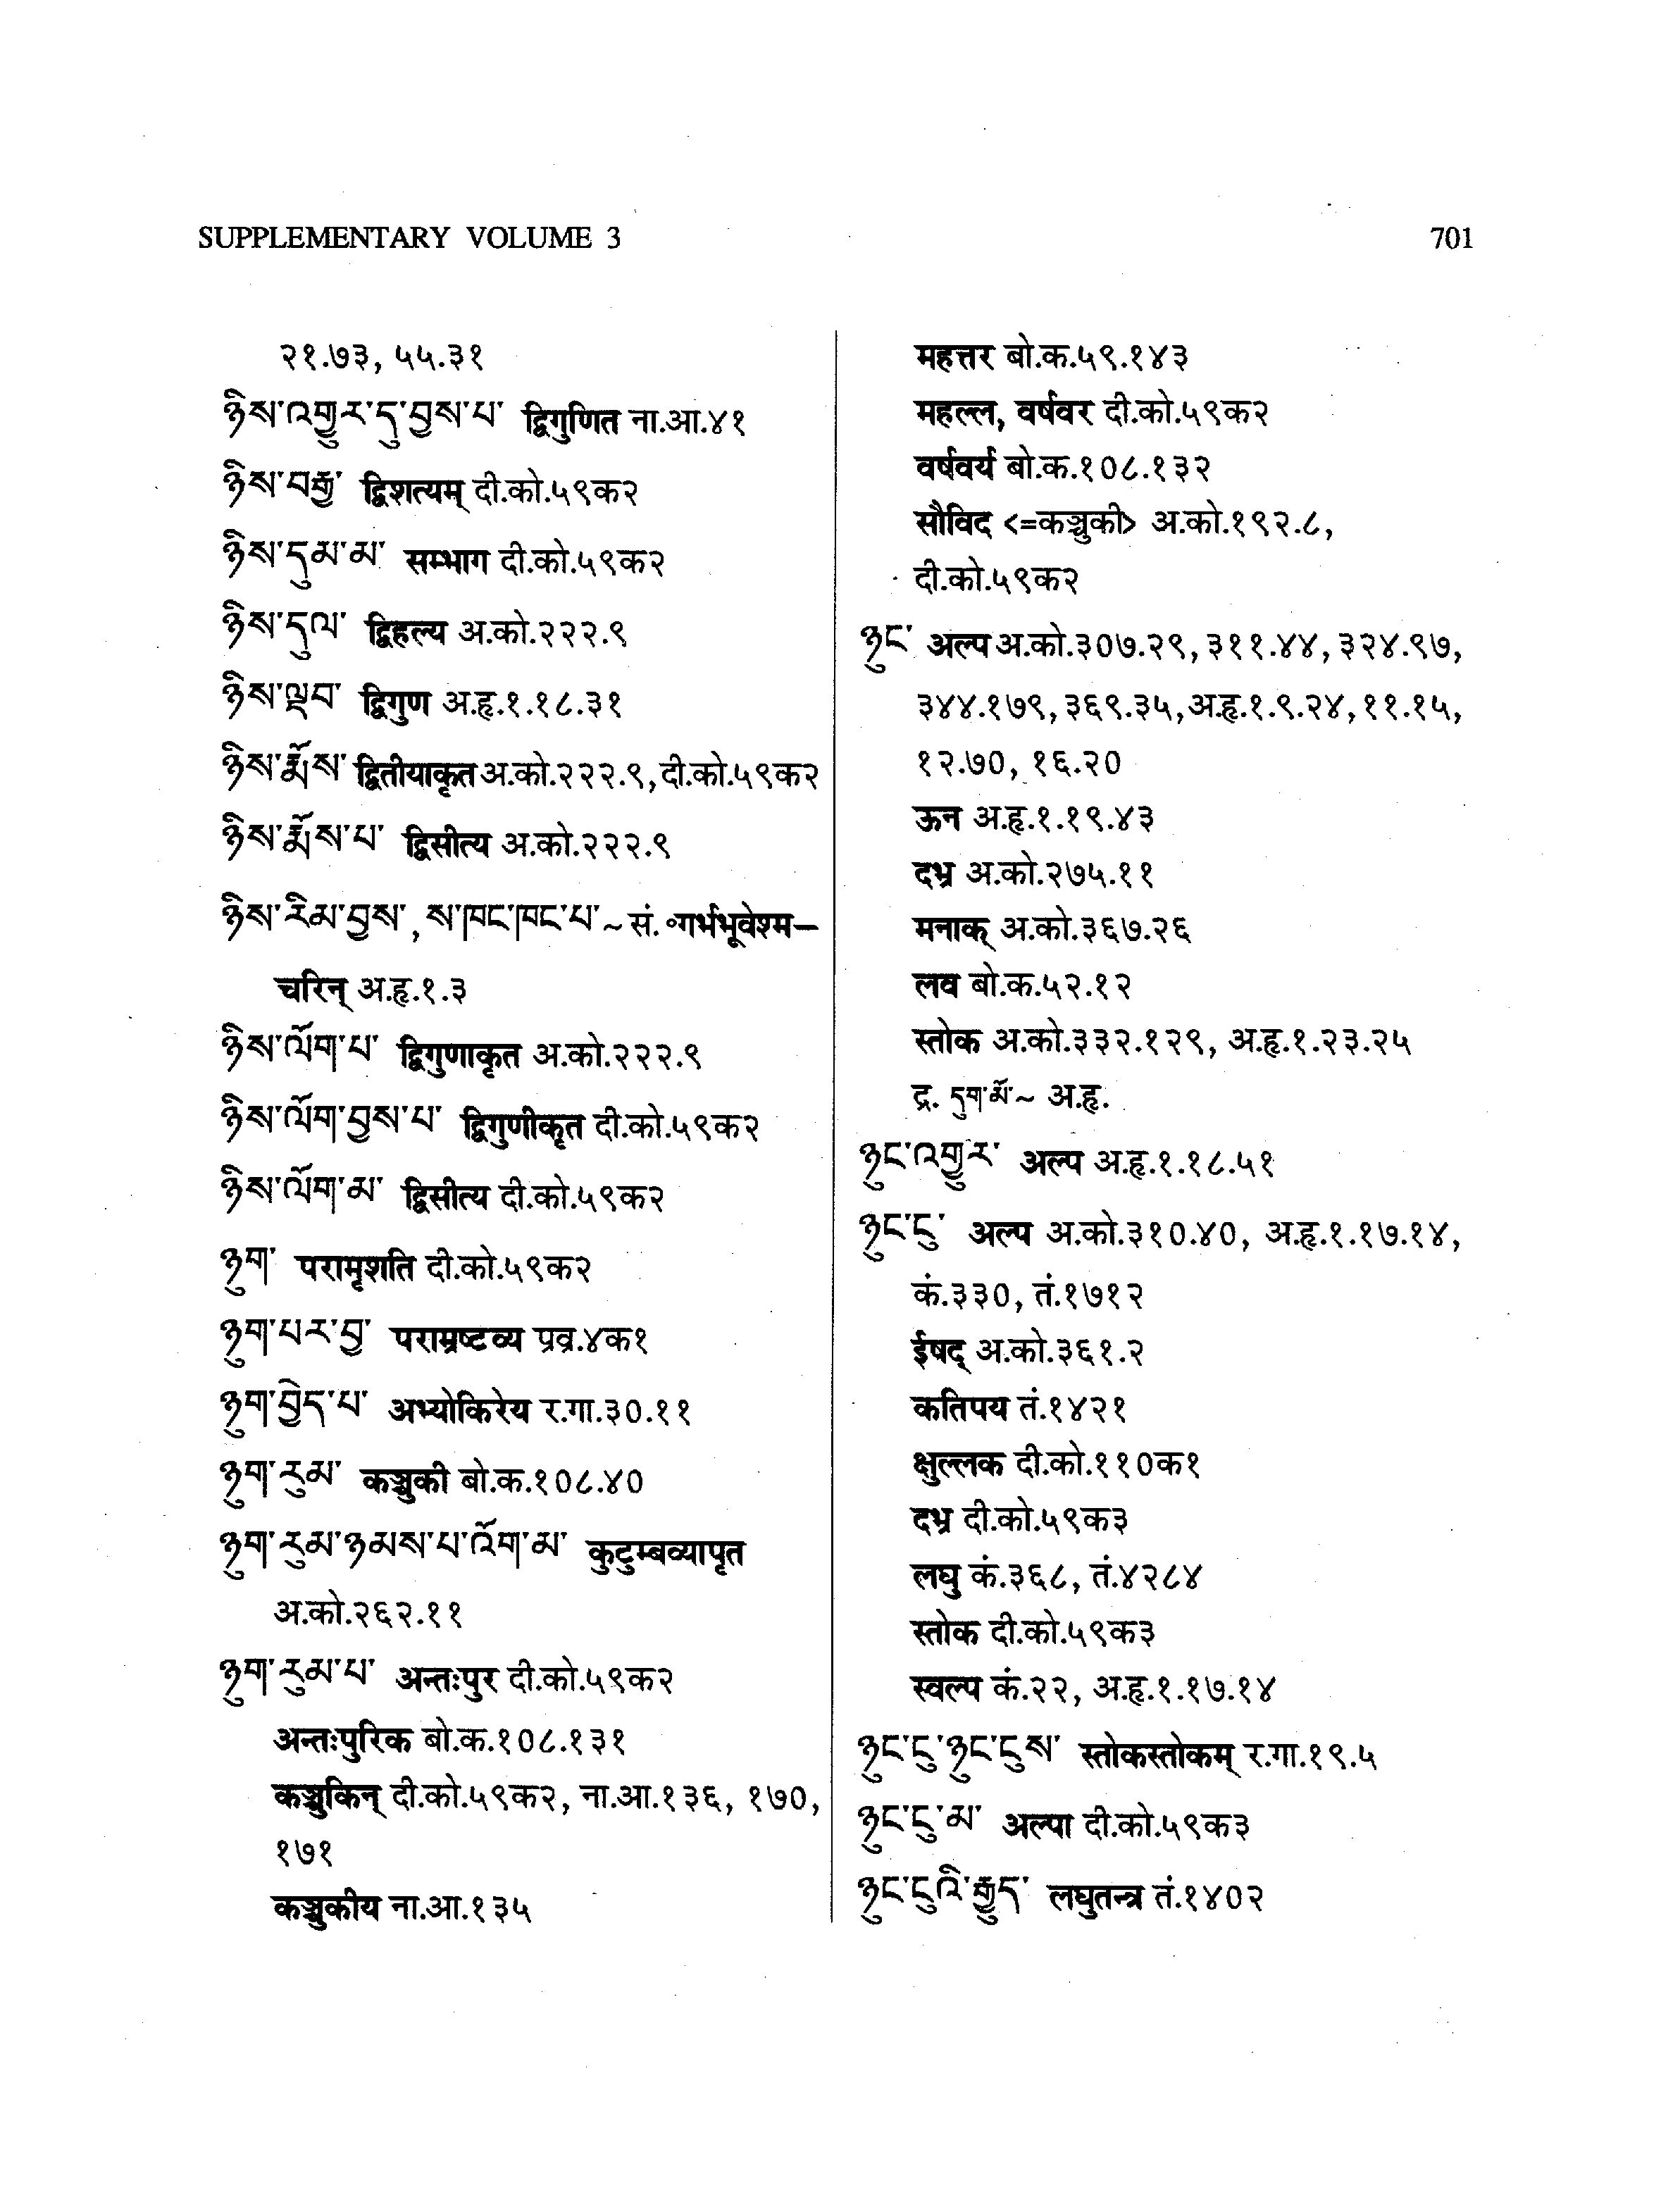 SUPPLEMENTARY VOLUME 3
701
२१.७३, ५५.३१
ཉིས་འགྱུར་དུ་བྱས་པ་ द्विगुणित ना.आ.४१
ཉིས་བརྒྱ་ द्विशत्यम् दी.को.५९क२
ཉིས་དུམ་མ་ सम्भाग दी.को.५९क२
ཉིས་དུལ་ द्विहल्य अ.को.२२२.९
ཉིས་ལྡབ་ द्विगुण अ.हृ.१.१८.३१
ཉིས་རྨོས་ द्वितीयाकृत अ.को.२२२.९, दी.को.५९क२
ཉིས་རྨོས་པ་ द्विसीत्य अ.को.२२२.९
ཉིས་རིམ་བྱས་, ས་ཁང་ཁང་པ་~ सं. ॰गर्भभूवेश्म–
चरिन् अ.हृ.१.३
ཉིས་ལོག་པ་ द्विगुणाकृत अ.को.२२२.९
ཉིས་ལོག་བྱས་པ་ द्विगुणीकृत दी.को.५९क२
ཉིས་ལོག་མ་ द्विसीत्य दी.को.५९क२
ཉུག་ परामृशति दी.को.५९क२
ཉུག་པར་བྱ་ पराम्रष्टव्य प्रव्र.४क१
ཉུག་བྱེད་པ་ अभ्योकिरेय र.गा.३०.११
ཉུག་རུམ་ कञ्चुकी बो.क.१०८.४०
ཉུག་རུམ་ཉམས་པ་འོག་མ་ कुटुम्बव्यापृत
अ.को.२६२.११
ཉུག་རུམ་པ་ अन्तःपुर दी.को.५९क२
अन्तःपुरिक बो.क.१०८.१३१
कञ्चुकिन् दी.को.५९क२, ना.आ.१३६, १७०,
१७१
कञ्चुकीय ना.आ.१३५
महत्तर बो.क.५९.१४३
महल्ल, वर्षवर दी.को.५९क२
वर्षवर्य बो.क.१०८.१३२
सौविद <=कञ्चुकी> अ.को.१९२.८,
दी.को.५९क२
ཉུང་ अल्प अ.को.३०७.२९, ३११.४४, ३२४.९७,
३४४.१७९, ३६९.३५, अ.हृ.१.९.२४, ११.१५,
१२.७०, १६.२०
ऊन अ.हृ.१.१९.४३
दभ्र अ.को.२७५.११
मनाक् अ.को.३६७.२६
लव बो.क.५२.१२
स्तोक अ.को.३३२.१२९, अ.हृ.१.२३.२५
द्र. དུག་མོ་~ अ.हृ.
ཉུང་འགྱུར་ अल्प अ.हृ.१.१८.५१
ཉུང་ངུ་ अल्प अ.को.३१०.४०, अ.हृ.१.१७.१४,
कं.३३०, तं.१७१२
ईषद् अ.को.३६१.२
कतिपय तं.१४२१
क्षुल्लक दी.को.११०क१
दभ्र दी.को.५९क३
लघु कं.३६८, तं.४२८४
स्तोक दी.को.५९क३
स्वल्प कं.२२, अ.हृ.१.१७.१४
ཉུང་ངུ་ཉུང་ངུས་ स्तोकस्तोकम् र.गा.१९.५
ཉུང་ངུ་མ་ अल्पा दी.को.५९क३
ཉུང་ངུའི་རྒྱུད་ लघुतन्त्र तं.१४०२